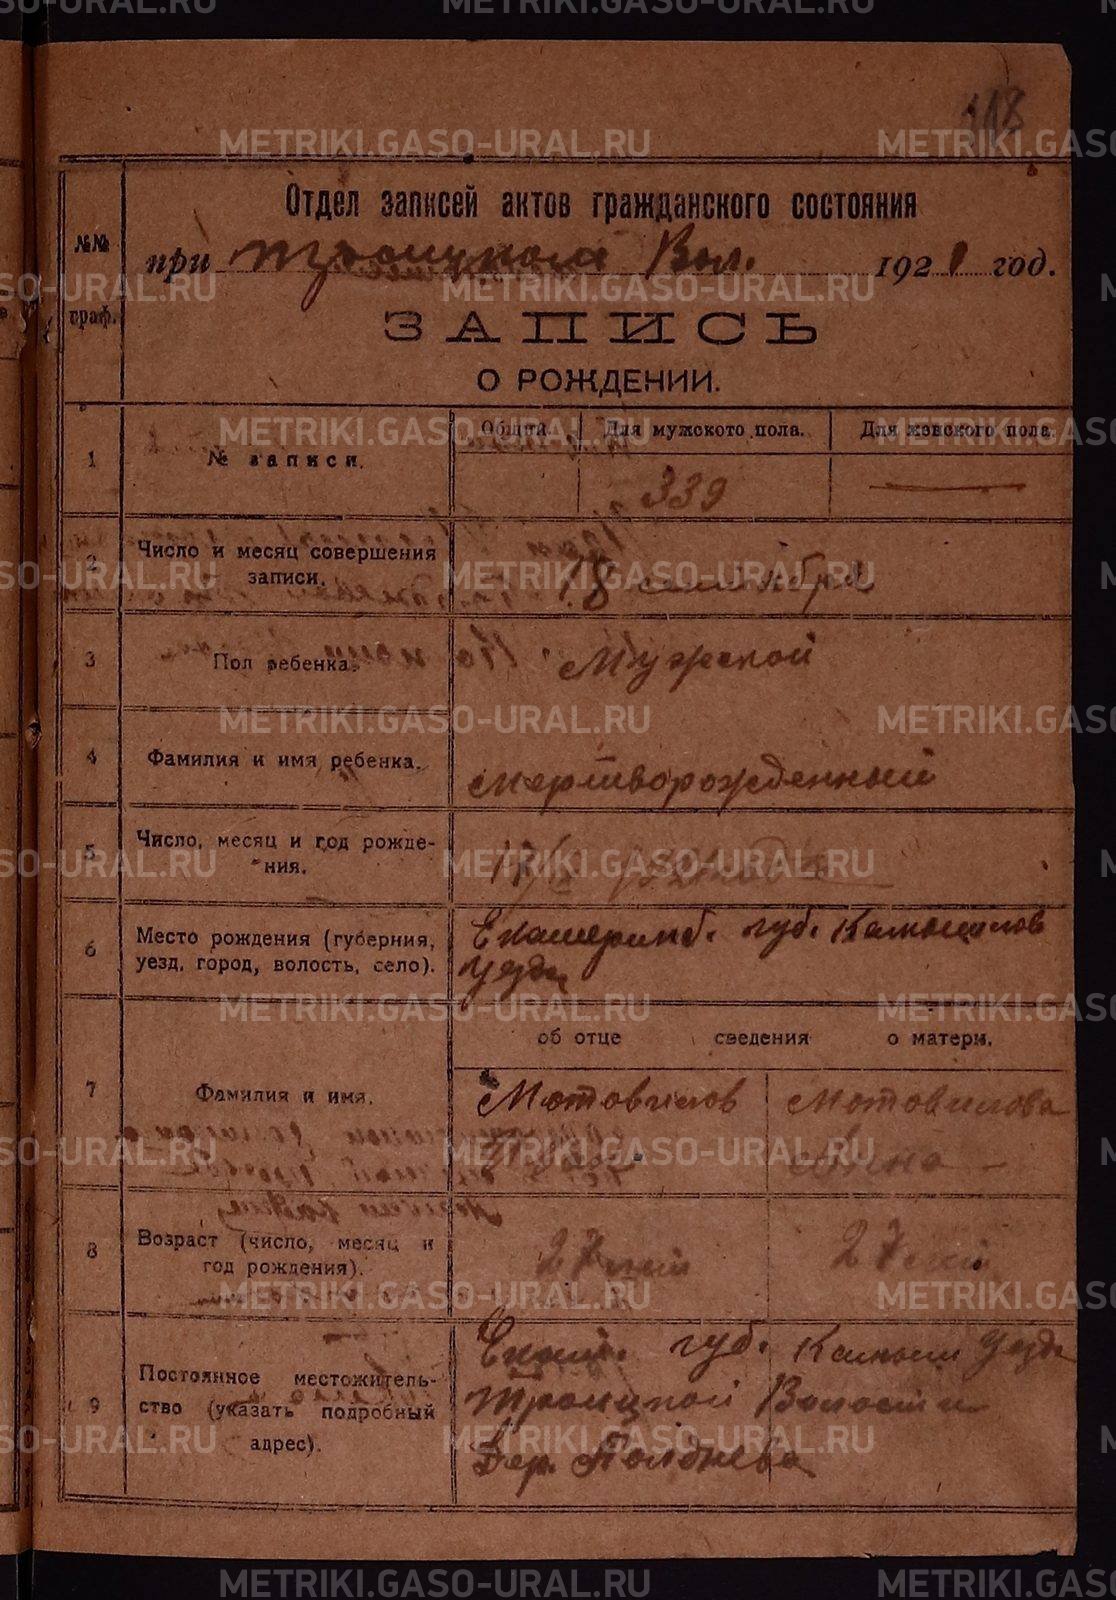 118
Отдел записей актов гражданского состояния
№№ граф.
при Троицкой Вол. 1921 год.
ЗАПИСЬ
О РОЖДЕНИИ.
Общий. Для мужского пола. Для женского пола.
1 № записи. 339 —
2 Число и месяц совершения
записи. 18 сентября
3 Пол ребенка. Мужской
4 Фамилия и имя ребенка. мертворожденный
5 Число, месяц и год рожде-
ния. 17/IX
6 Место рождения (губерния,
уезд, город, волость, село).
Екатеринб. губ. Камышлов
уезда
об отце сведения о матери.
7 Фамилия и имя.
Мотовилов Мотовилова
8 Возраст (число, месяц и
год рождения). 27 лет 27 лет
9 Постоянное местожитель-
ство (указать подробный
адрес).
Екат. губ. Камышл уезда
Троицкой Волости
Дер. Полднева
METRIKI.GASO-URAL.RU